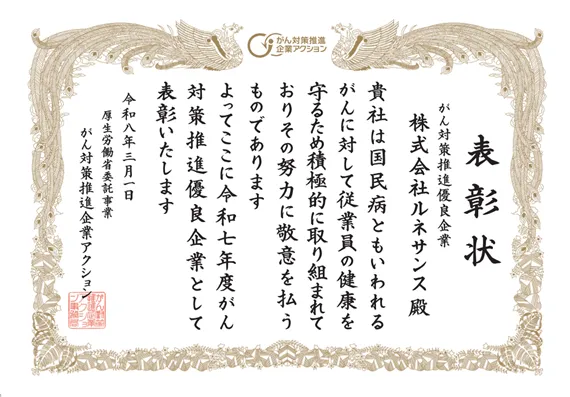 がん対策推進
企業アクション
表彰状
がん対策推進優良企業
株式会社ルネサンス 殿
貴社は国民病ともいわれる
がんに対して従業員の健康を
守るため積極的に取り組まれて
おりその努力に敬意を払う
ものであります
よってここに令和七年度がん
対策推進優良企業として
表彰いたします
令和八年三月一日
厚生労働省委託事業
がん対策推進企業アクション